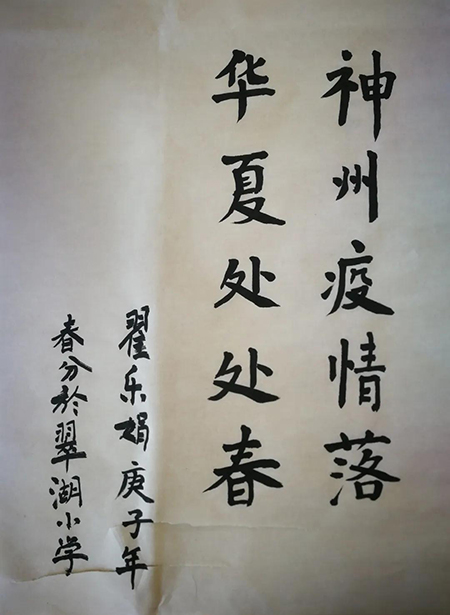 神州疫情落
华夏处处春
翟乐娟庚子年
春分於翠湖小学